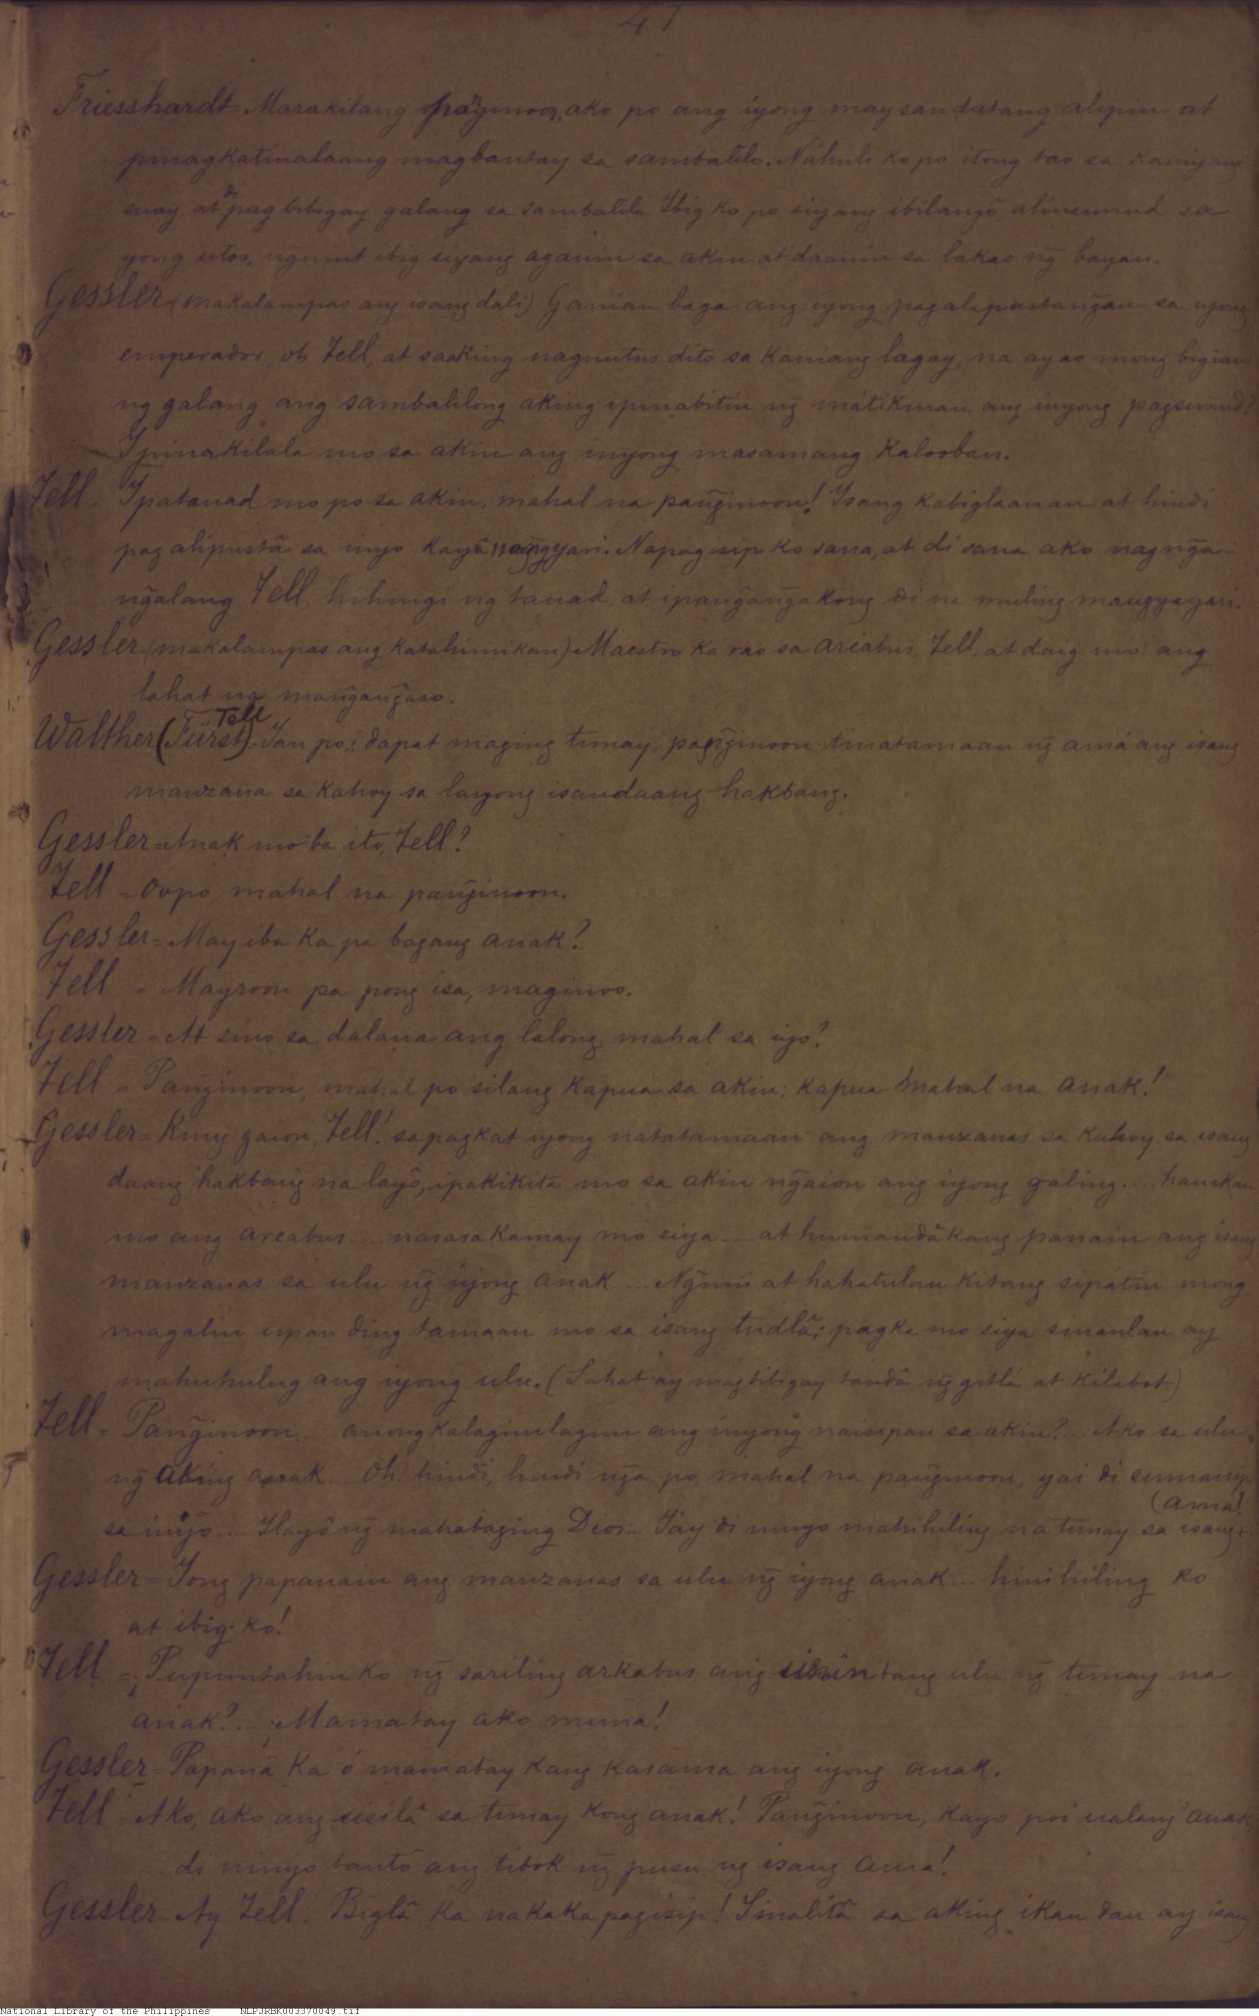 47
Friesshardt - Marakilang pang̃inoon, ako po ang iyong may sandatang alipin at
pinagkatiualaang magbantay sa sambalilo. Náhuli ko po itong tao sa kaniyang
suay at di pagbibigay galang sa sambalilo Ibig ko po siyang ibilangô, alinsunud sa
yong utos, ng̃unit ibig siyang agauin sa akin at daanin sa lakas ng̃ bayan.
Gessler (makalampas ang isang dali) Ganian baga ang iyong pagalipustang̃an sa iyong
emperador, oh Tell, at saaking naguutus dito sa kaniang lagay, na ayao mong bigian
ng galang ang sambalilong aking ipinabitin ng mátikman ang inyong pagsunud?
Ipinakilala mo sa akin ang inyong masamang kalooban.
Tell - Ipatauad mo po sa akin, mahal na pang̃inoon! Isang kabiglaanan at hindi
pag alipustâ sa inyo kayâ nangyari. Napagisip ko sana, at di sana ako nagng̃a-
ng̃alang Tell, hihingi ng tauad, at ipang̃ang̃akong di na muling mangyayari.
Gessler (makalampas ang katahimikan) Maestro ka rao sa arcabus, Tell, at daig mo ang
lahat ng mang̃ang̃aso.
Walther (Fürst) Tell - Yan po'i dapat maging tunay, pang̃inoon tinatamaan ng̃ amá ang isang
manzana sa kahoy sa layong isandaang hakbang.
Gessler = Anak mo ba ito, Tell?
Tell - Oopo, mahal na pang̃inoon.
Gessler = May iba ka pa bagang anak?
Tell - Mayroon pa pong isa, maginoo.
Gessler - At sino sa dalaua ang lalong mahal sa iyo?
Tell = Pang̃inoon, mahal po silang kapua sa akin; kapua mahal na anak!
Gessler = Kung gaion, Tell! sapagkat iyong natatamaan ang manzanas sa kahoy sa isang
daang hakbang na layô, ipakikita mo sa akin ng̃aion ang iyong galing.... hauakan
mo ang arcabus .... nasasakamay mo siya ... at humandâ kang panain ang isang
manzanas sa ulu ng̃ iyong anak ... Ng̃uni at hahatulan kitang sipatin mong
magaling upan ding tamaan mo sa isang tudlâ; pagka mo siya sinanlan ay
mahuhulug ang iyong ulu. (Lahat ay magbibigay tandâ ng̃ gitla at kilabot)
Tell = Pang̃inoon, anong kalagimlagim ang inyong naisipan sa akin? .. Ako sa ulu
ng̃ aking anak ... Oh hindi, hindi ng̃a po, mahal na pang̃inoon, yai di sumagip
sa inyo ... Ilayô ng̃ mahabaging Dios... Iay di ninyo mahihiling na tunay sa isang
(ama!
Gessler = Iong papanain ang manzanas sa ulu ng̃ iyong anak ... hinihiling ko
at ibig ko!
Tell = ¿Pupuntahin ko ng̃ sariling arkabus ang sisintang ulu ng̃ tunay na
anak? ... ¡Mamatay ako muna!
Gessler = Papanâ ka ó mamatay kang kasama ang iyong anak.
Tell - Ako, ako ang sisilâ sa tunay kong anak! Pang̃inoon, kayo poi ualang anak
di ninyo tantô ang tibok ng̃ pusu ng isang ama!
Gessler - Ay Tell! Biglâ ka nakakapagisip! Sinalitâ sa aking ikau dau ay isang
National Library of the Philippines NLPJRBK003370049.tif